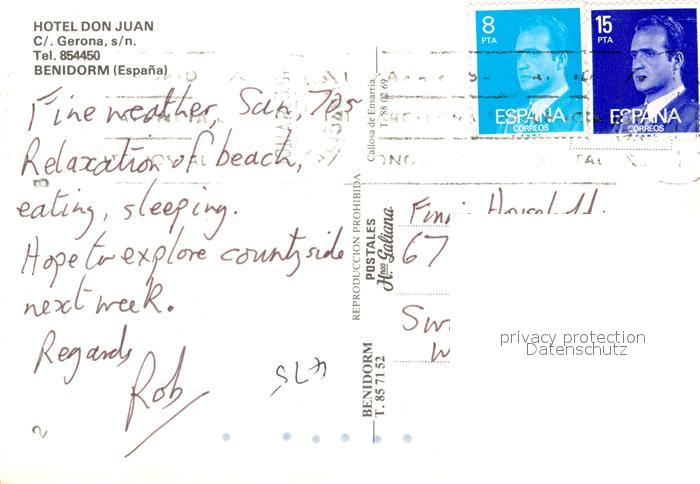 HOTEL DON JUAN
C/. Gerona, s/n.
Tel. 854450
BENIDORM (España)
Fine weather, Sun, 70s
Relaxation of beach,
eating, sleeping.
Hope to explore countryside
next week.
Regards
Rob
REPRODUCCION PROHIBIDA
POSTALES
Hnos. Galiana
Callosa de Ensarriá
T. 88 02 69
BENIDORM
T. 85 71 52
8
PTA
ESPAÑA
CORREOS
15
PTA
ESPAÑA
CORREOS
Household
67
privacy protection
Datenschutz